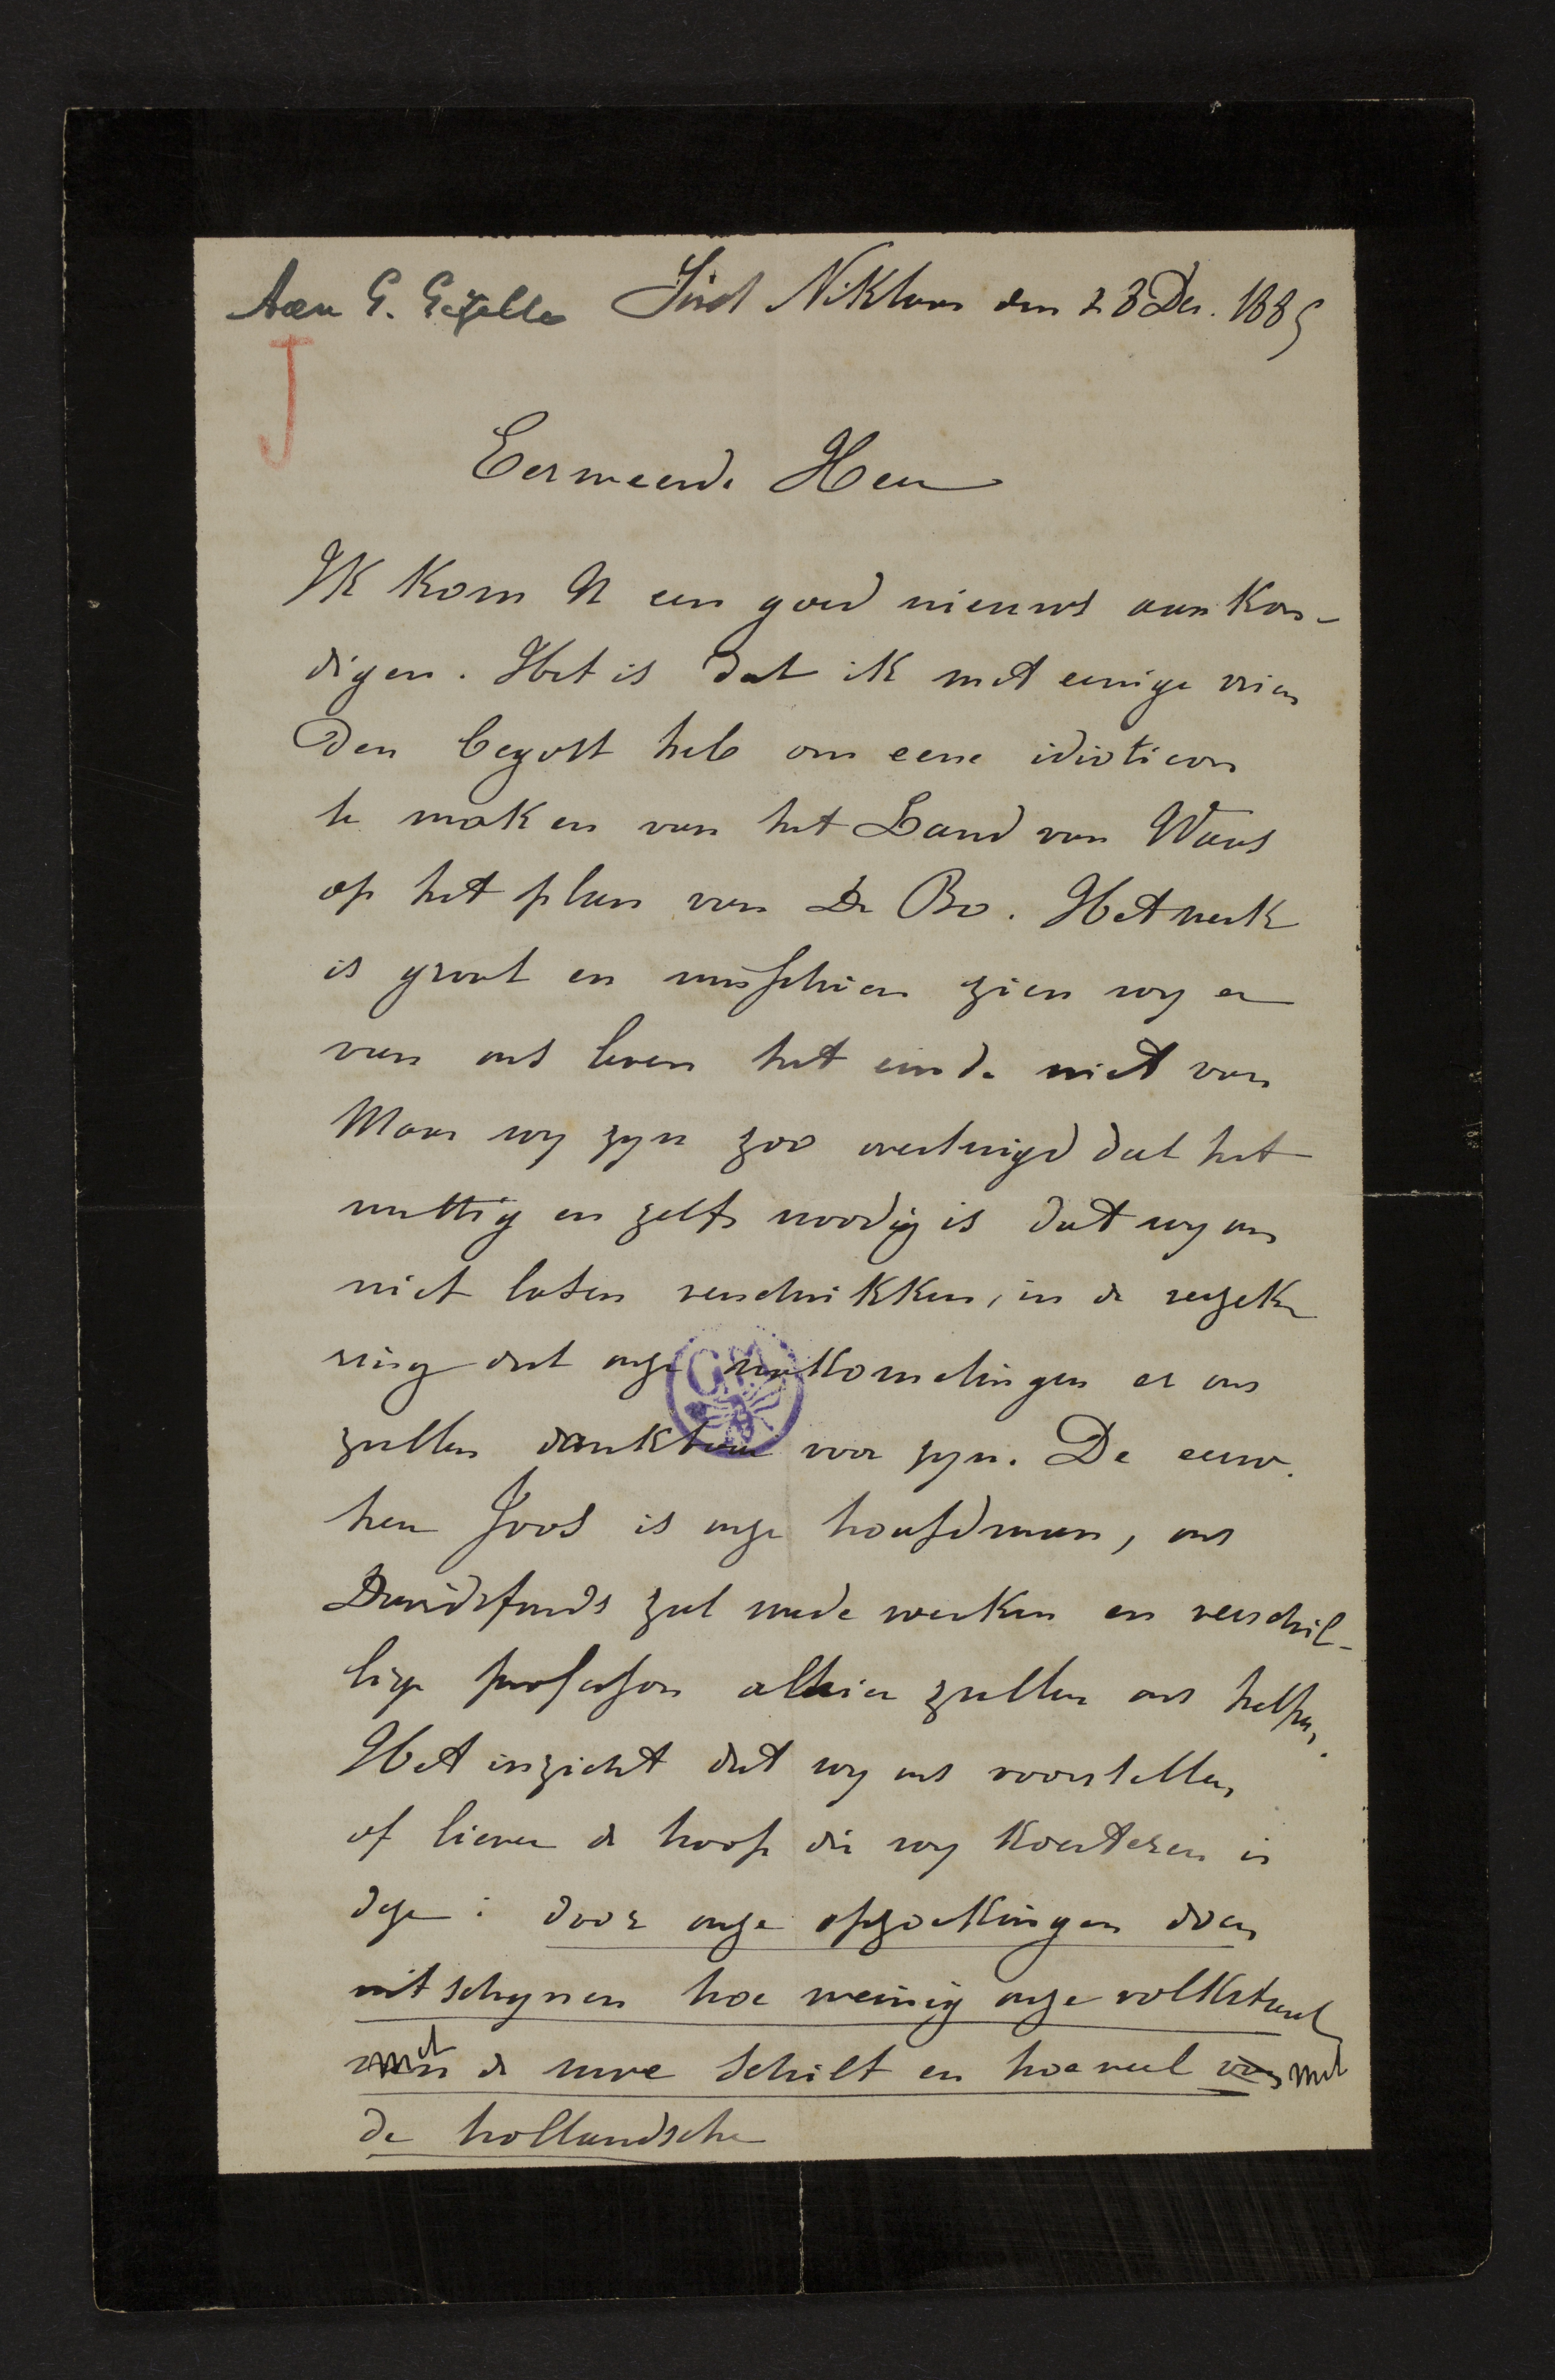 Aan G. Gezelle Sint Niklaas den 28 Dec. 1885
J
Eerweerde Heer
Ik kom U een goed nieuws aankon-
digen. Het is dat ik met eenige vrien
den begost heb om eene idioticon
te maken van het Land van Waas
op het plan van De Bo. Het werk
is groot en misschien zien wy er
van ons leven het einde niet van
Maar wy zyn zoo overtuigd dat het
nuttig en zelfs noodig is dat wy ons
niet laten verschrikken, in de verzeke
ring dat onze nakomelingen er ons
zullen dankbaar voor zyn. De eerw.
heer Joos is onze hoofdman, ons
Davidsfonds zal mede werken en verschil-
lige professors alhier zullen ons helpen.
Het inzicht dat wy ons voorstellen
of liever de hoop die wy koesteren is
deze: door onze opzoekingen doen
uitschynen hoe weinig onze volkstaal
met de uwe schilt en hoeveel van met
de hollandsche